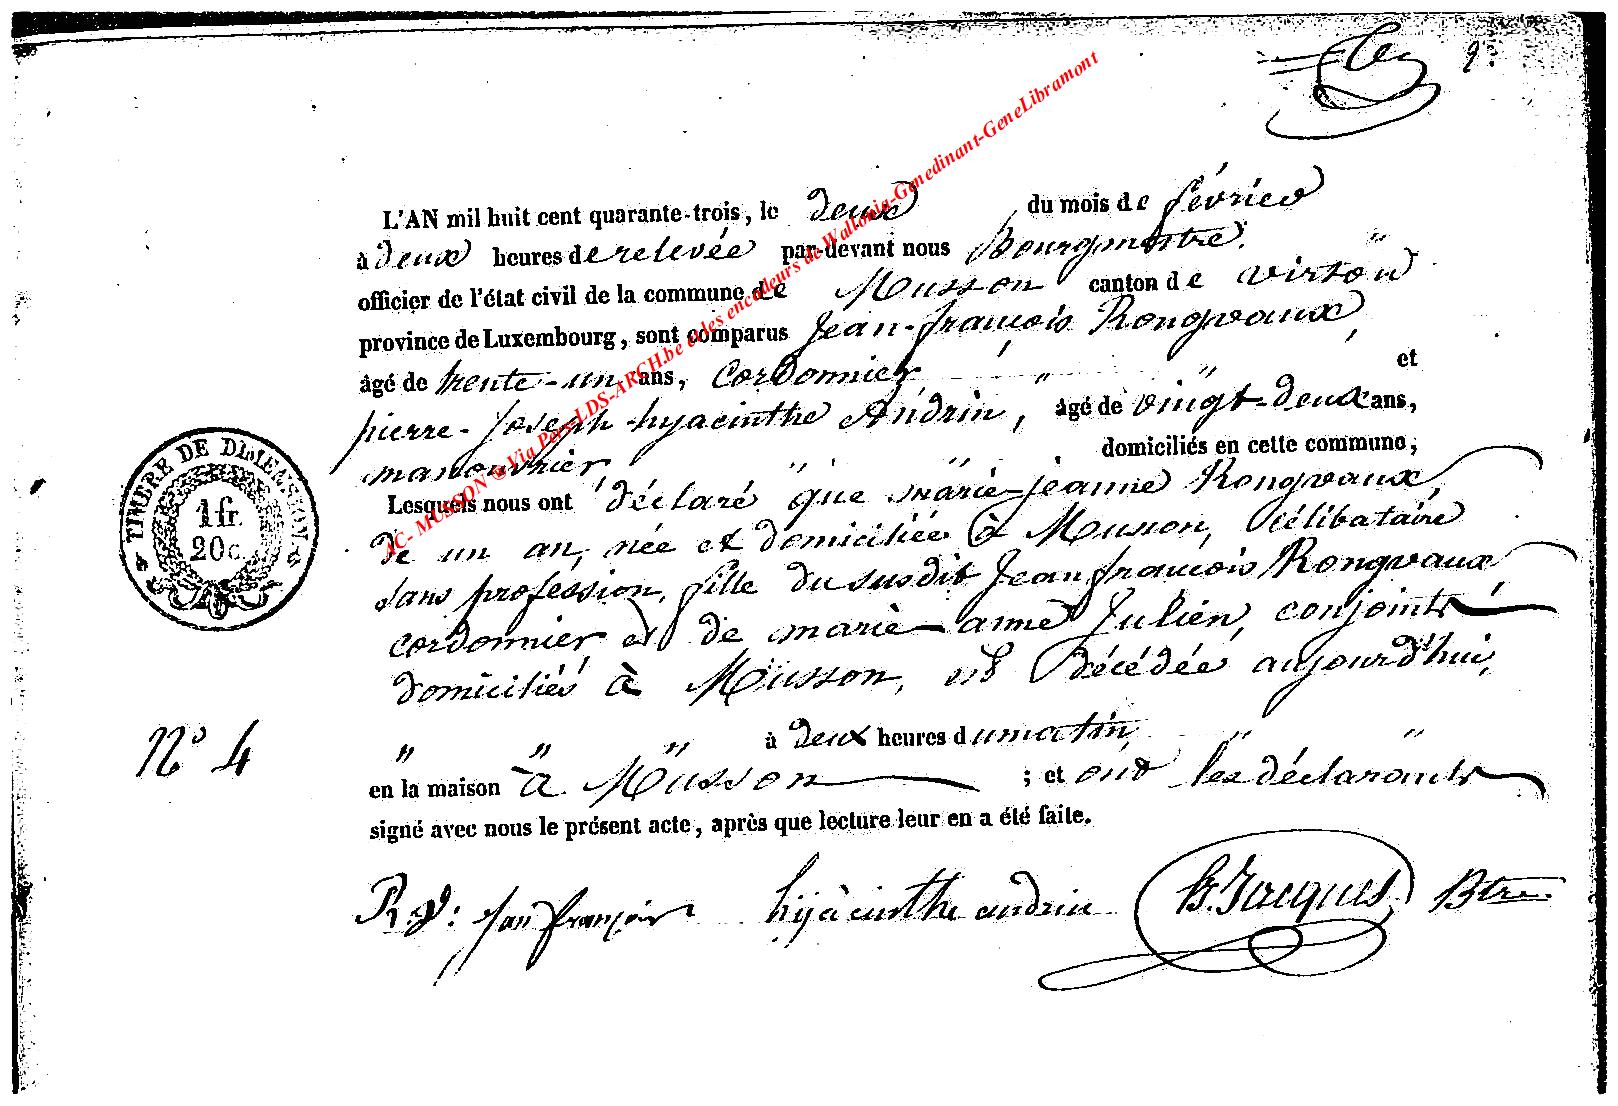 2.
L'AN mil huit cent quarante-trois, le deux du mois de février
à deux heures de relevée par-devant nous Bourgmestre.
officier de l'état civil de la commune de Musson canton de virton
province de Luxembourg, sont comparus Jean-françois Rongvaux,
âgé de trente-un ans, Cordonnier, " " et
pierre-Joseph-hyacinthe Andrin, âgé de vingt-deux ans,
manouvrier " " domiciliés en cette commune;
Lesquels nous ont déclaré que marie-jeanne Rongvaux,
de un an, née et domiciliée à Musson, célibataire
sans profession, fille du susdit Jean françois Rongvaux
cordonnier et de marie-anne Julien, conjoints
domiciliés à Musson, est décédée aujourd'hui,
" " " à deux heures du matin, " "
en la maison à Musson ; et ont les déclarants
signé avec nous le présent acte, après que lecture leur en a été faite.
TIMBRE DE DIMENSION
1 fr.
20 c.
N° 4
R.g: Jan françois hyacinthe andrin B. Jacques Btre
AC- MUSSON © Via Pers-LDS-ARCH.be et les encodeurs de Wallonia-Genedinant-GeneLibramont